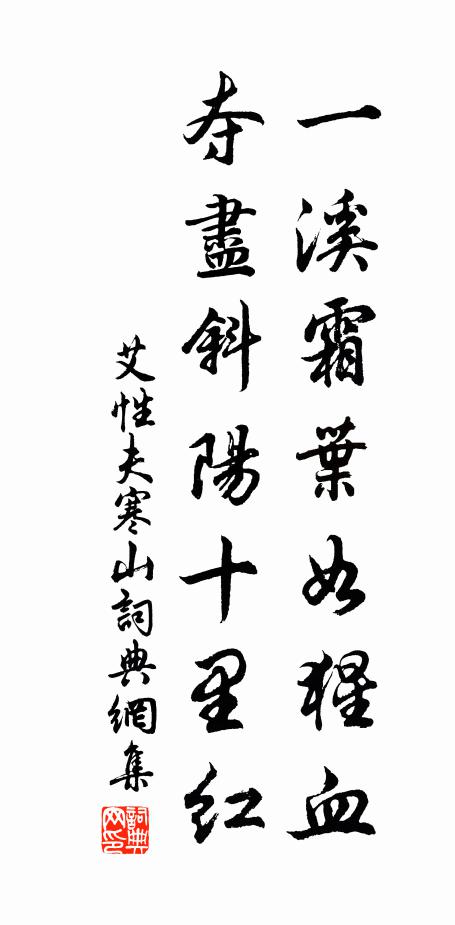 一溪霜葉如猩血
夺盡斜陽十里红
艾性夫寒山詞典網集
詞典网印